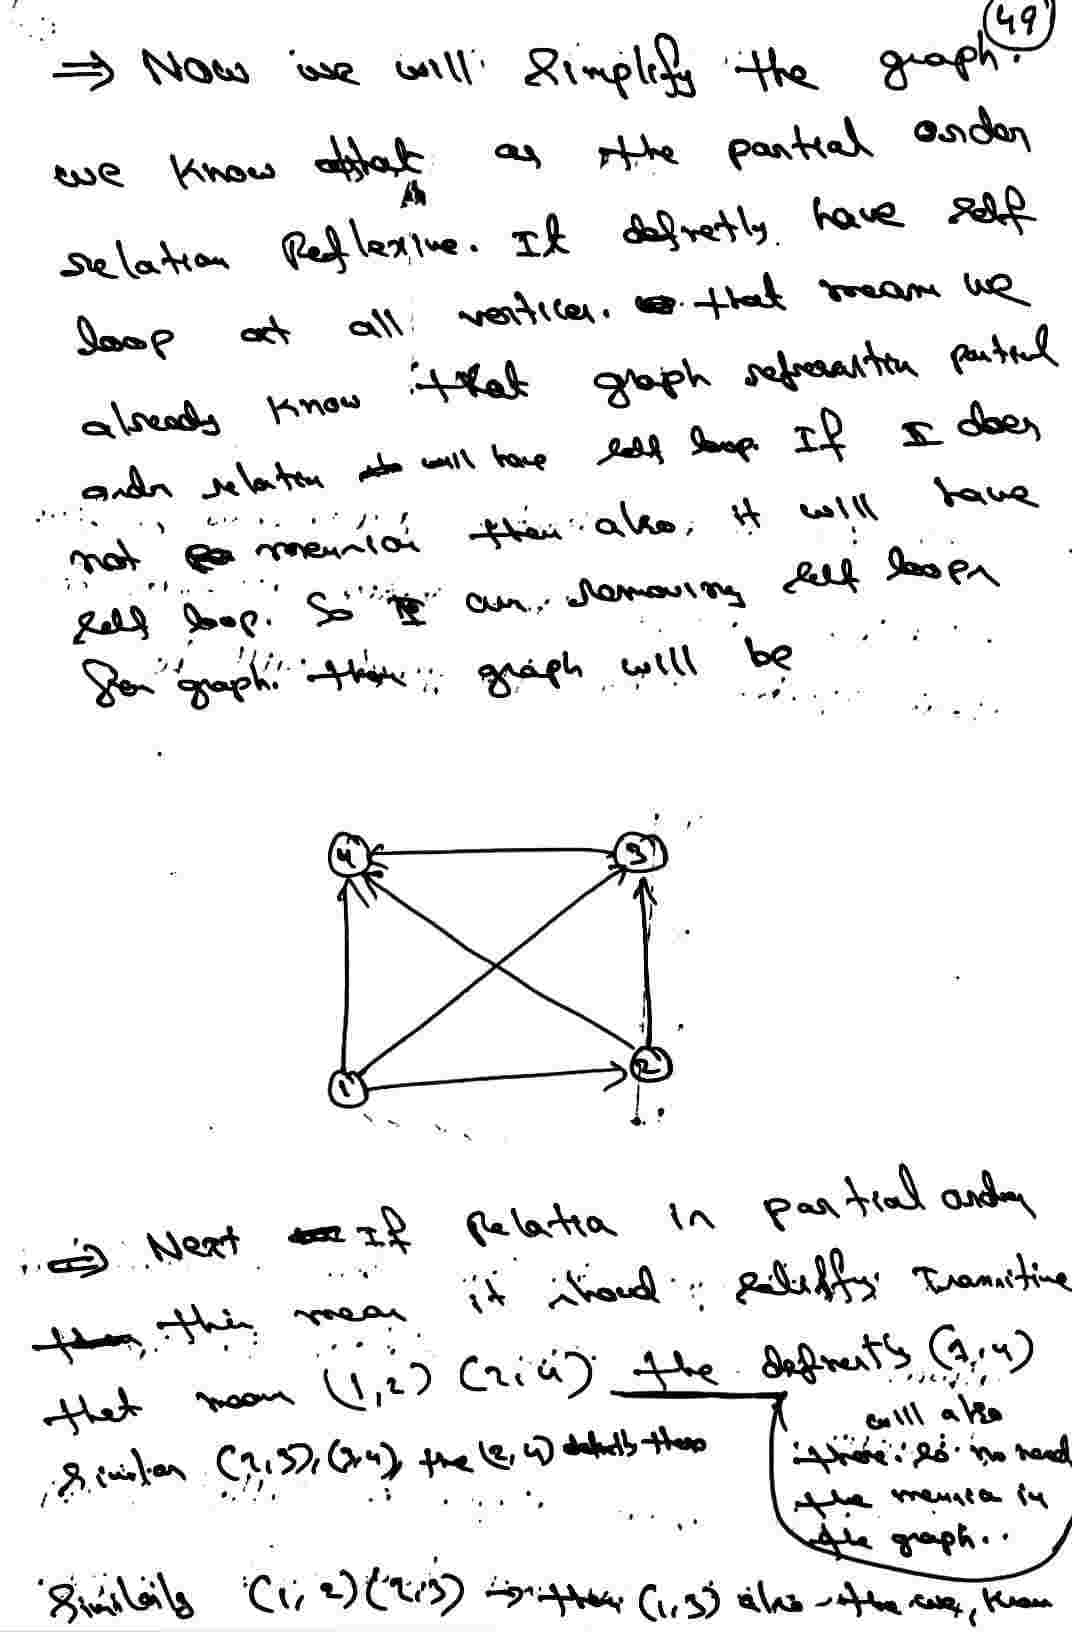 49
⇒ Now we will Simplify the graph.
we know that as the partial order
relation Reflexive. It defnetly have self
loop at all vertices. that mean we
already know that graph partial
order relation will have self loop. If I does
not then also, it will have
self loop. So I am removing self loops
for graph. then graph will be
4 3
1 2
⇒ Next If Relation in partial order
this mean it shoud satisfy Transitive
that mean (1,2) (2,4) the (1,4)
will also
there. So no need
the in
the graph..
Similar (2,3), (3,4), the (2,4) there
Similarly (1,2)(2,3) → then (1,3) also the we, know